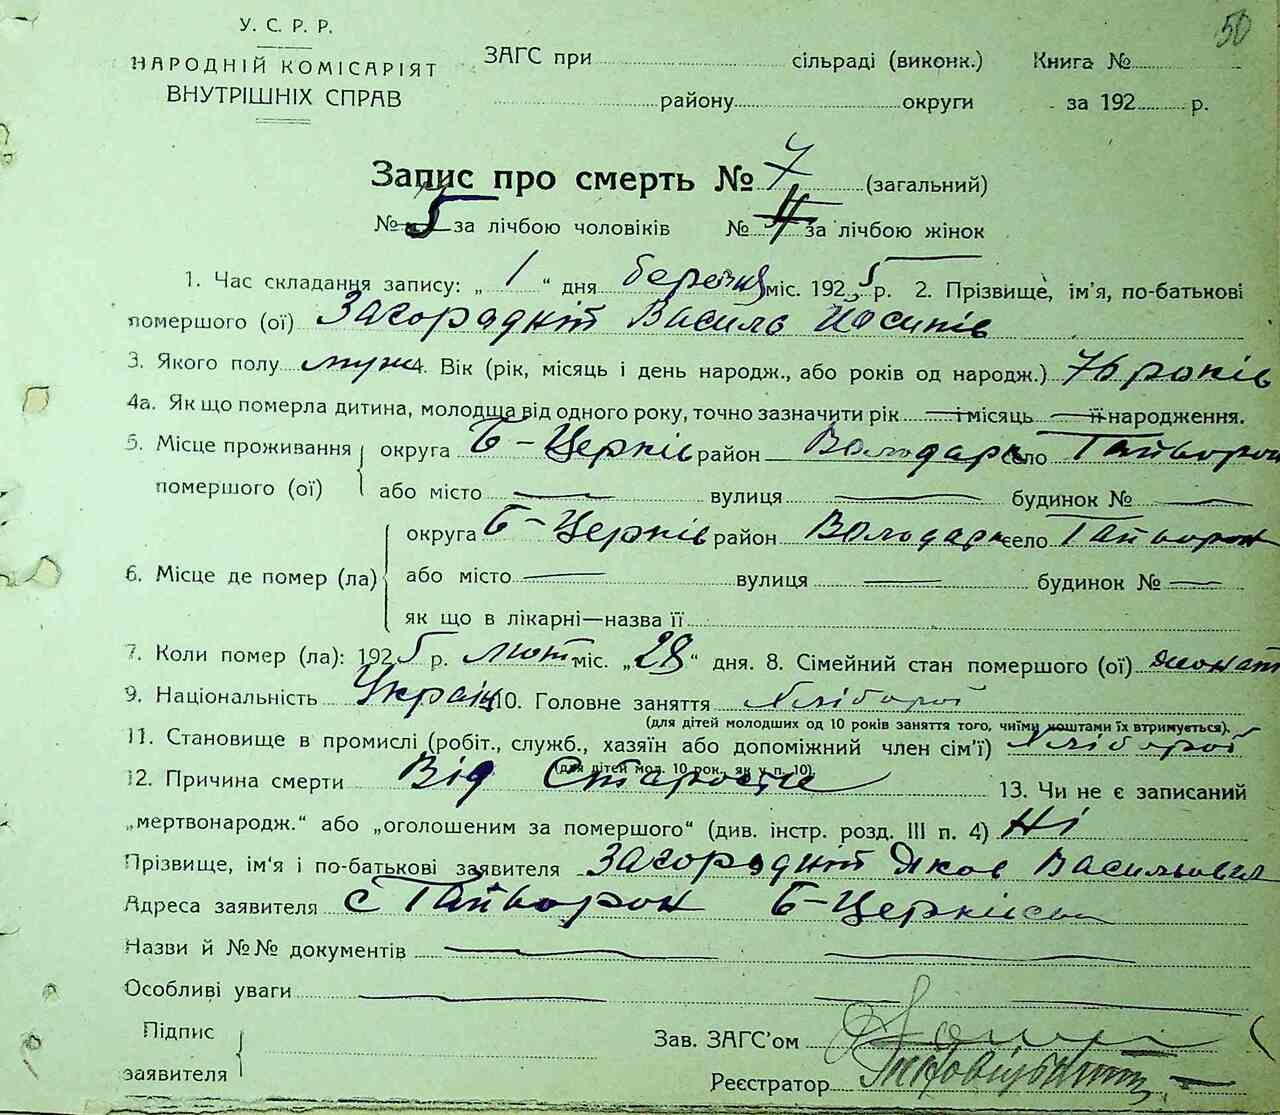 50
У. С. Р. Р.
НАРОДНІЙ КОМІСАРІЯТ
ВНУТРІШНІХ СПРАВ
ЗАГС при сільраді (виконк.) Книга №
району округи за 192 р.
Запис про смерть № 7 (загальний)
№ 5 за лічбою чоловіків № за лічбою жінок
1. Час складання запису: „ 1 “ дня березня міс. 1925 р. 2. Прізвище, ім'я, по-батькові
помершого (ої) Загородній Василь Йосипів
3. Якого полу муж 4. Вік (рік, місяць і день народж., або років од народж.) 76 років
4а. Як що померла дитина, молодша від одного року, точно зазначити рік — і місяць — її народження.
5. Місце проживання
помершого (ої)
округа Б-Церків район Володарк село Гайворон
або місто — вулиця — будинок № —
6. Місце де помер (ла)
округа Б-Церків район Володарк село Гайворон
або місто — вулиця — будинок № —
як що в лікарні—назва її
7. Коли помер (ла): 1925 р. лют міс. „28“ дня. 8. Сімейний стан помершого (ої) жонат
9. Національність Україн 10. Головне заняття Хлібороб
(для дітей молодших од 10 років заняття того, чиїми коштами їх втримується).
11. Становище в промислі (робіт., служб., хазяїн або допоміжний член сім'ї) Хлібороб
(для дітей мол. 10 рок., як у п. 10).
12. Причина смерти Від Старости 13. Чи не є записаний
„мертвонародж.“ або „оголошеним за помершого“ (див. інстр. розд. III п. 4) Ні
Прізвище, ім'я і по-батькові заявителя Загородній Яков Васильович
Адреса заявителя с Гайворон Б-Церківськ
Назви й №№ документів — —
Особливі уваги — — —
Підпис
заявителя
Зав. ЗАГС'ом
Реєстратор